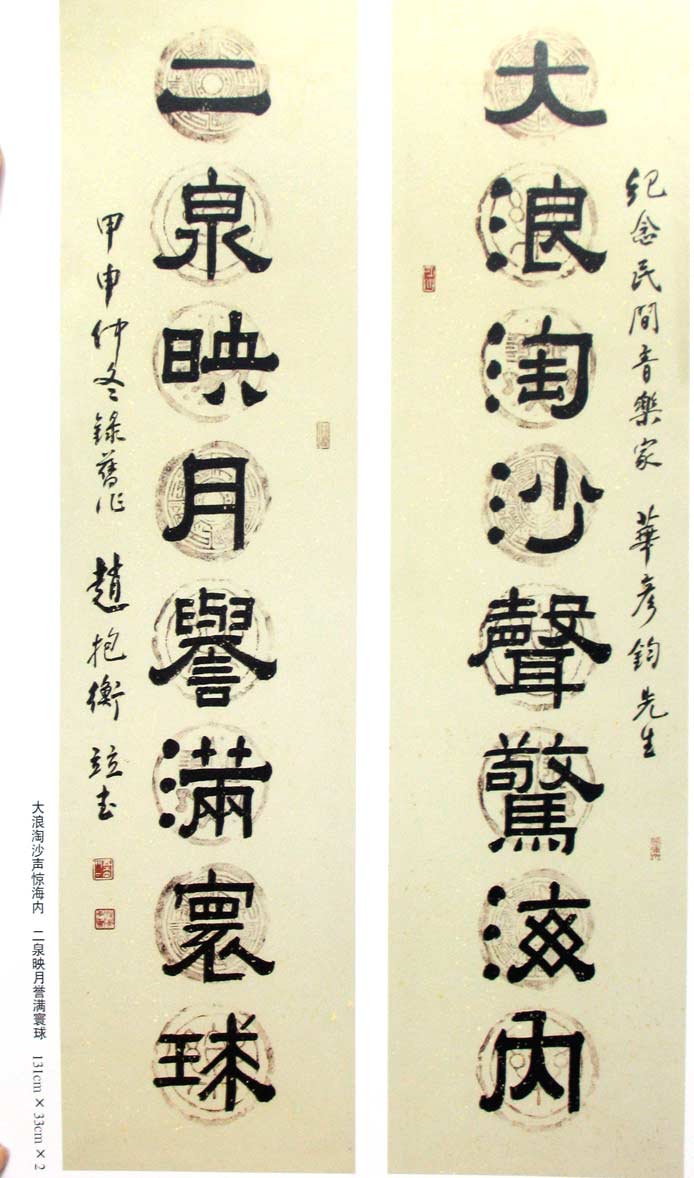 紀念民間音樂家 華彦鈞先生
大浪淘沙聲驚海内
二泉映月譽滿寰球
甲申仲冬錄舊作 趙抱衡並書
大浪淘沙声惊海内 二泉映月誉满寰球 131cm × 33cm × 2